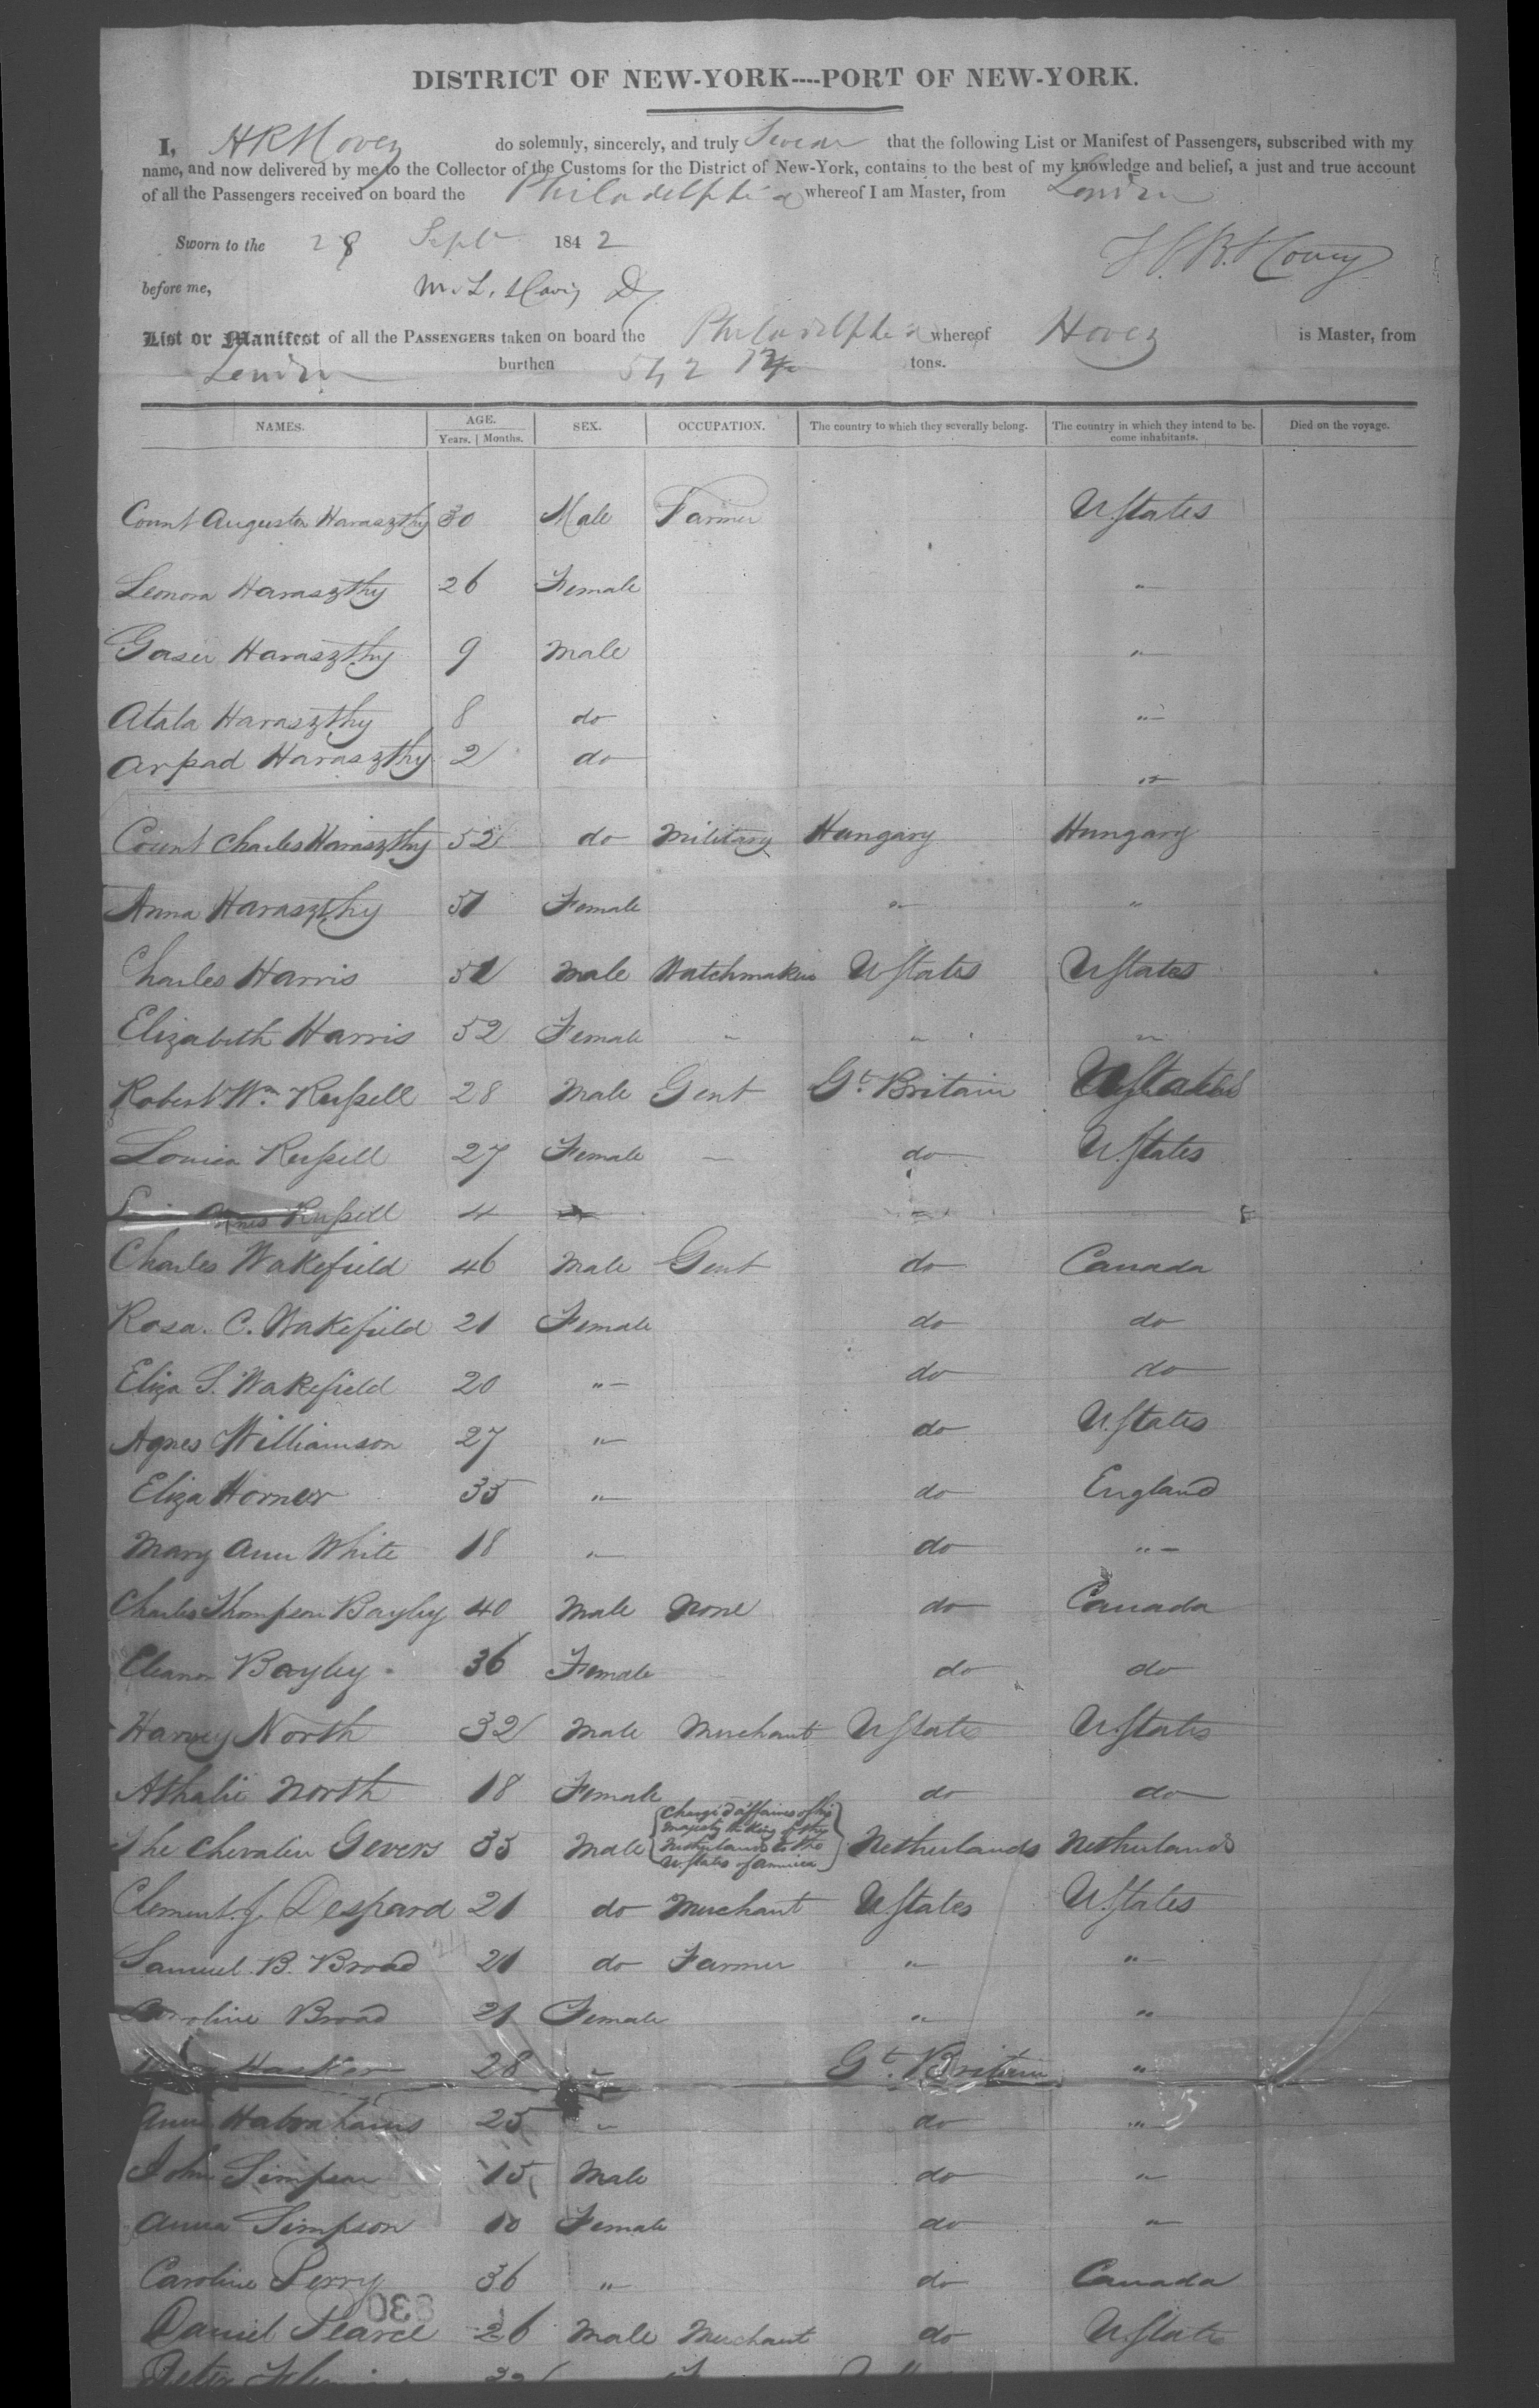 DISTRICT OF NEW-YORK----PORT OF NEW-YORK.
I, H R Hovey do solemnly, sincerely, and truly Swear that the following List or Manifest of Passengers, subscribed with my
name, and now delivered by me to the Collector of the Customs for the District of New-York, contains to the best of my knowledge and belief, a just and true account
of all the Passengers received on board the Philadelphia whereof I am Master, from London
Sworn to the 28 Sept 1842
before me,
List or Manifest of all the PASSENGERS taken on board the Philadelphia whereof Hovey is Master, from
London burthen 542 tons.
NAMES. AGE. SEX. OCCUPATION. The country to which they severally belong. The country in which they intend to be- Died on the voyage.
Years. | Months. come inhabitants.
Count Augustin Haraszthy 30 Male Farmer U States
Leonora Haraszthy 26 Female "
Gaser Haraszthy 9 Male "
Atala Haraszthy 8 do "
Arpad Haraszthy 2 do "
Count Charles Haraszthy 52 do Military Hungary Hungary
Anna Haraszthy 51 Female " "
Charles Harris 51 Male Watchmaker U States U States
Elizabeth Harris 52 Female " " "
Robert Wm Russell 28 Male Gent Gt. Britain U States
Louisa Russell 27 Female do U States
Russell 4
Charles Wakefield 46 Male Gent do Canada
Rosa. C. Wakefield 21 Female do do
Eliza S. Wakefield 20 " do do
Agnes Williamson 27 " do U States
Eliza Horner 35 " do England
Mary Ann White 18 " do "
Charles Thompson Bayley 40 Male None do Canada
Eleanor Bayley 36 Female do do
Harvey North 32 Male Merchant U States U States
Athalie North 18 Female do do
The Chevalier Gevers 35 Male Chargé d'affaires of his Majesty the King of the Netherlands to the U. States of America Netherlands Netherlands
Clement. J. Despard 21 do Merchant U States U States
Samuel B. Broad 21 do Farmer " "
Caroline Broad 21 Female " "
Hasker 28 " Gt. Britain "
Ann 25 " do "
John Simpson 15 Male do "
Anna Simpson 10 Female do "
Caroline Perry 36 " do Canada
830
Daniel Pearce 26 Male Merchant do U State
Peter